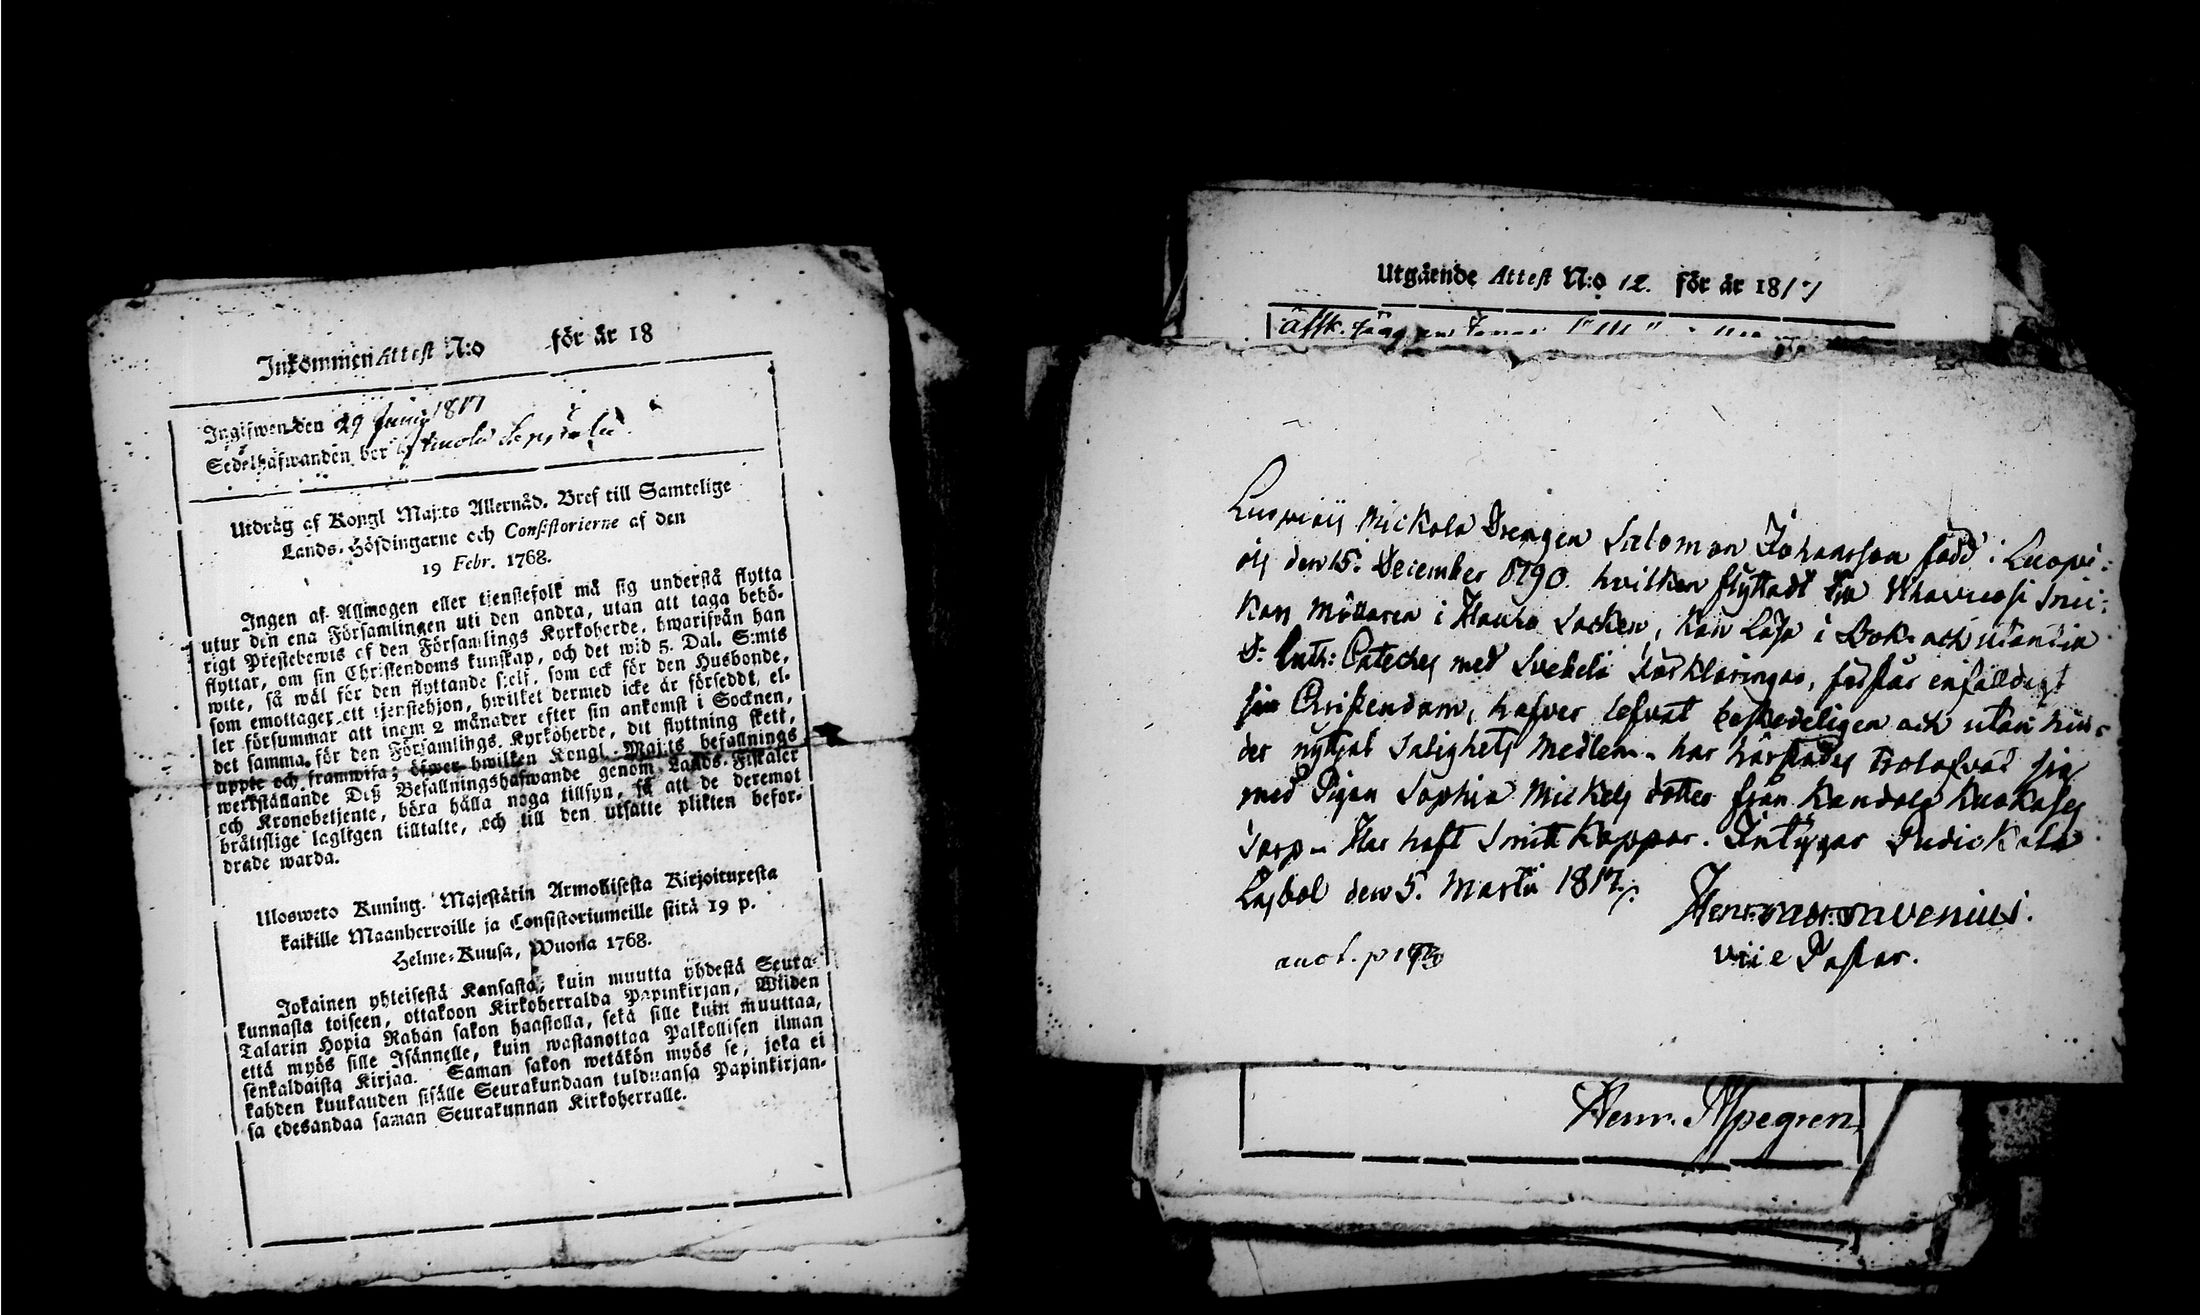 Inkommen Attest N:o för år 18
Ingifwen den 29 Junii 1817
Sedelhafwanden bor
Utdrag af Kongl Maj:ts Allernåd. Bref till Samtelige
Lands-Höfdingarne och Consistorierne af den
19 Febr. 1768.
Ingen af Allmogen eller tjenstefolk må sig understå flytta
utur den ena Församlingen uti den andra, utan att taga behö-
rigt Prestebewis af den Församlings Kyrkoherde, hwarifrån han
flyttar, om sin Christendoms kunskap, och det wid 5. Dal. S:mts
wite, så wäl för den flyttande sjelf, som ock för den Husbonde,
som emottager ett tjenstehjon, hwilket dermed icke är försedt, el-
ler försummar att inom 2 månader efter sin ankomst i Socknen,
det samma för den Församlings Kyrkoherde, dit flyttning skett,
uppte och framwisa; öfwer hwilken Kongl. Maj:ts befallnings
werkställande Deß Befallningshafwande genom Lands-Fiskaler
och Kronobetjente, böra hålla noga tillsyn, så att de deremot
bråtislige lagligen tilltalte, och till den utsatte plikten befor-
drade warda.
Ulosweto Kuning. Majestätin Armollisesta Kirjoituxesta
kaikille Maanherroille ja Consistoriumeille siitä 19 p.
Helme-Kuusa, Wuona 1768.
Jokainen yhteisestä Kansasta, kuin muutta yhdestä Seura-
kunnasta toiseen, ottakoon Kirkoherralda Papinkirjan, Wiiden
Talarin Hopia Rahan sakon haastolla, sekä sille kuin muuttaa,
että myös sille Isännelle, kuin wastanottaa Palkollisen ilman
senkaldaista Kirjaa. Saman sakon wetäkön myös se, joka ei
kahden kuukauden sisälle Seurakundaan tulduansa Papinkirjan-
sa edesandaa saman Seurakunnan Kirkoherralle.
Utgående Attest N:o 12. för år 1817
Luopiois Mickola Drengen Salomon Johansson född i Luopi-
ois den 15. December 1790. hvilken flyttadt till
i Hauho Socken, kan läsa i Bok och utantill
D: Luth: Cateches med Svebelii Förklaringar, förstår enfalldigt
sin Christendom, hafver lefvat beskedeligen och utan hin-
der nyttjat Salighets medlen. har härstädes trolofvat sig
med Pigan Sophia Mickels dotter från
Torp. Har haft Smitt Koppor. Intygar
den 5. Martii 1817.
vice Pastor.
Henr. Alpegren